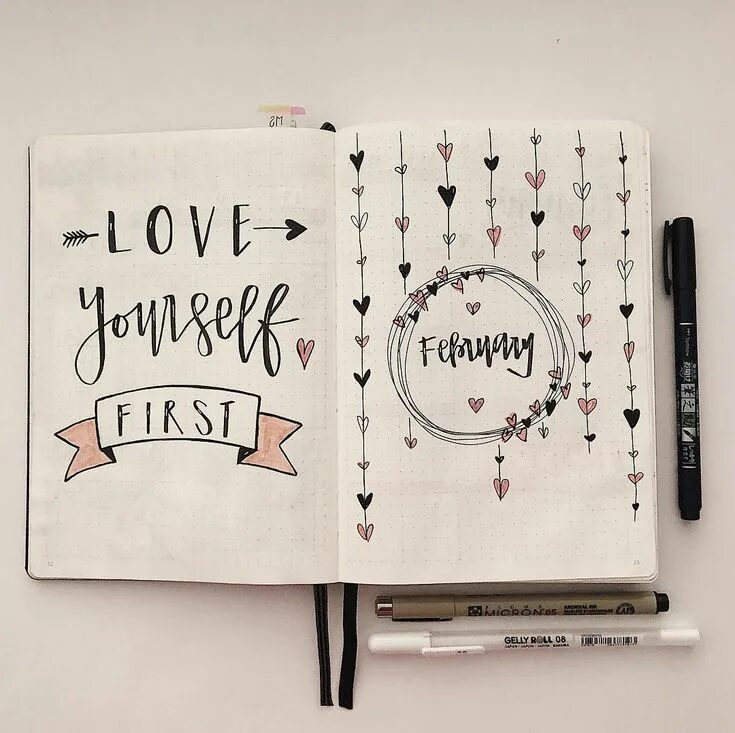 LOVE
Yourself
FIRST
February
MICRON 05
ARCHIVAL INK
GELLY ROLL 08